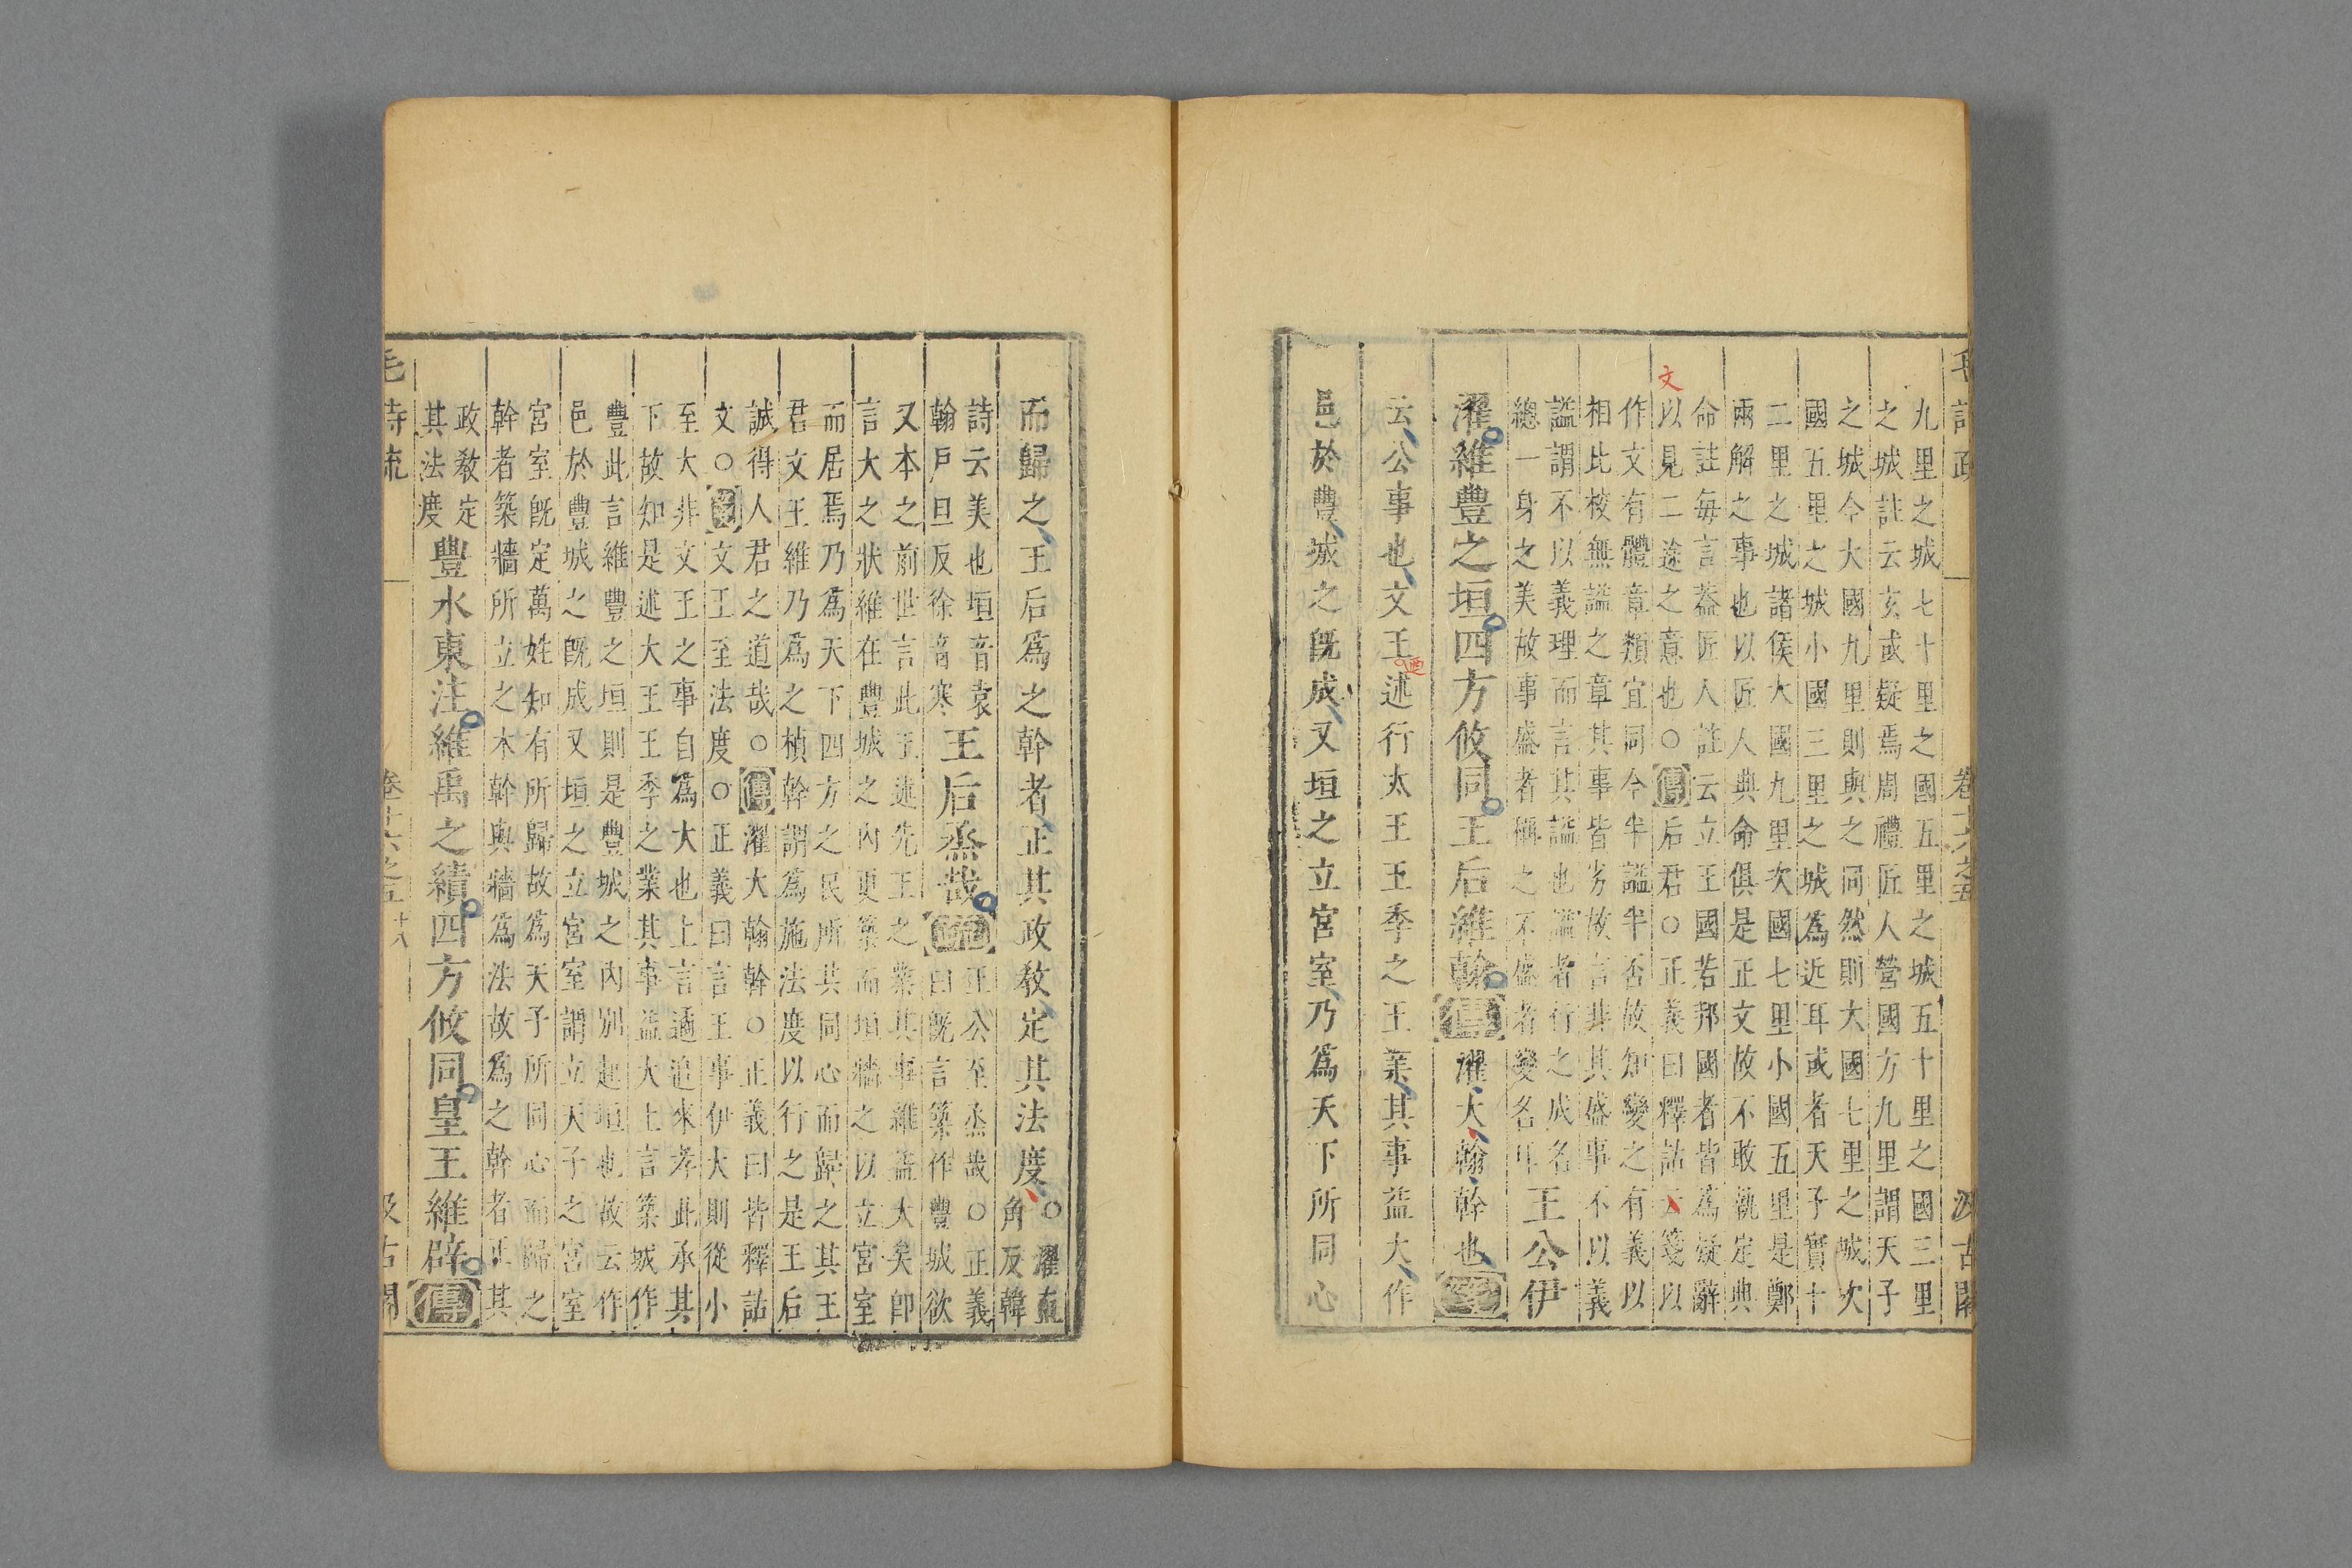 毛詩疏 卷十六之五 汲古閣
九里之城七十里之國五里之城五十里之國三里
之城註云玄或疑焉周禮匠人營國方九里謂天子
之城今大國九里則與之同然則大國七里之城次
國五里之城小國三里之城為近耳或者天子實十
二里之城諸侯大國九里次國七里小國五里是鄭
兩解之事也以匠人典命俱是正文故不敢執定典
命註每言蓋匠人註云立王國若邦國者皆為疑辭
文
以見二途之意也○傳后君○正義曰釋詁云箋以
作文有體章類宜同今半謚半否故知變之有義以
相比校無謚之章其事皆劣故言非其盛事不以義
謚謂不以義理而言其謚也謚者行之成名
總一身之美故事盛者稱之不盛者變名耳
王公伊
濯維豐之垣四方攸同王后維翰傳濯大翰幹也箋
云公事也文王述行太王王季之王業其事益大作
邑於豐城之旣成又垣之立宮室乃為天下所同心
而歸之王后為之幹者正其政教定其法度○濯直
角反韓
詩云美也垣音袁
翰戶旦反徐音寒
王后烝哉疏
正公至烝哉○正義
曰旣言築作豐城欲
又本之前世言此王述先王之業其事維益大矣即
言大之狀維在豐城之內更築而垣牆之以立宮室
而居焉乃為天下四方之民所共同心而歸之其王
君文王維乃為之楨幹謂為施法度以行之是王后
誠得人君之道哉○傳濯大翰幹○正義曰皆釋詁
文○箋文王至法度○正義曰言王事伊大則從小
至大非文王之事自為大也上言遹追來孝此承其
下故知是述大王王季之業其事益大上言築城作
豐此言維豐之垣則是豐城之內別起垣也故云作
邑於豐城之旣成又垣之立宮室謂立天子之宮室
宮室旣定萬姓知有所歸故為天子所同心而歸之
幹者築牆所立之木幹與牆為法故為之幹者正其
政教定
其法度
豐水東注維禹之績四方攸同皇王維辟傳
毛詩疏 卷十六之五 廿八 汲古閣